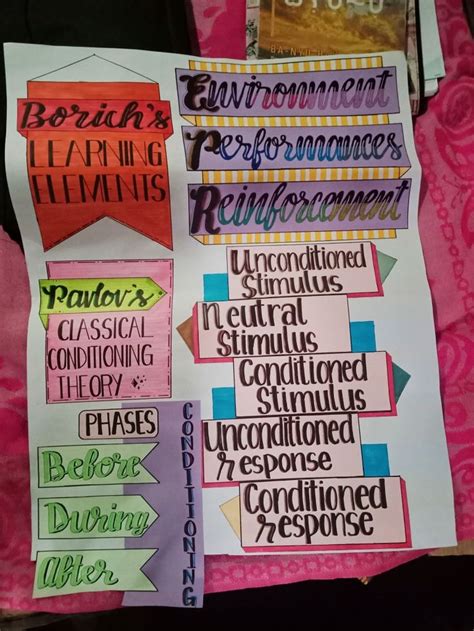 Borich's
LEARNING
ELEMENTS
Environment
Performances
Reinforcement
Pavlov's
CLASSICAL
CONDITIONING
THEORY
Unconditioned
Stimulus
Neutral
Stimulus
Conditioned
Stimulus
Unconditioned
response
Conditioned
response
PHASES
Before
During
After
CONDITIONING